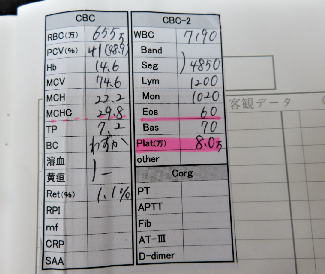 CBC
RBC(万) 655
PCV(%) 41
Hb 14.6
MCV 74.6
MCH 22.2
MCHC 29.8
TP 7.2
BC わずか
溶血
黄疸 -
Ret(%) 1.1%
RPI
mf
CRP
SAA
CBC-2
WBC 7190
Band
Seg 4850
Lym 1200
Mon 1020
Eos 60
Bas 70
Plat(万) 8.0万
other
Corg
PT
APTT
Fib
AT-III
D-dimer
客観データ